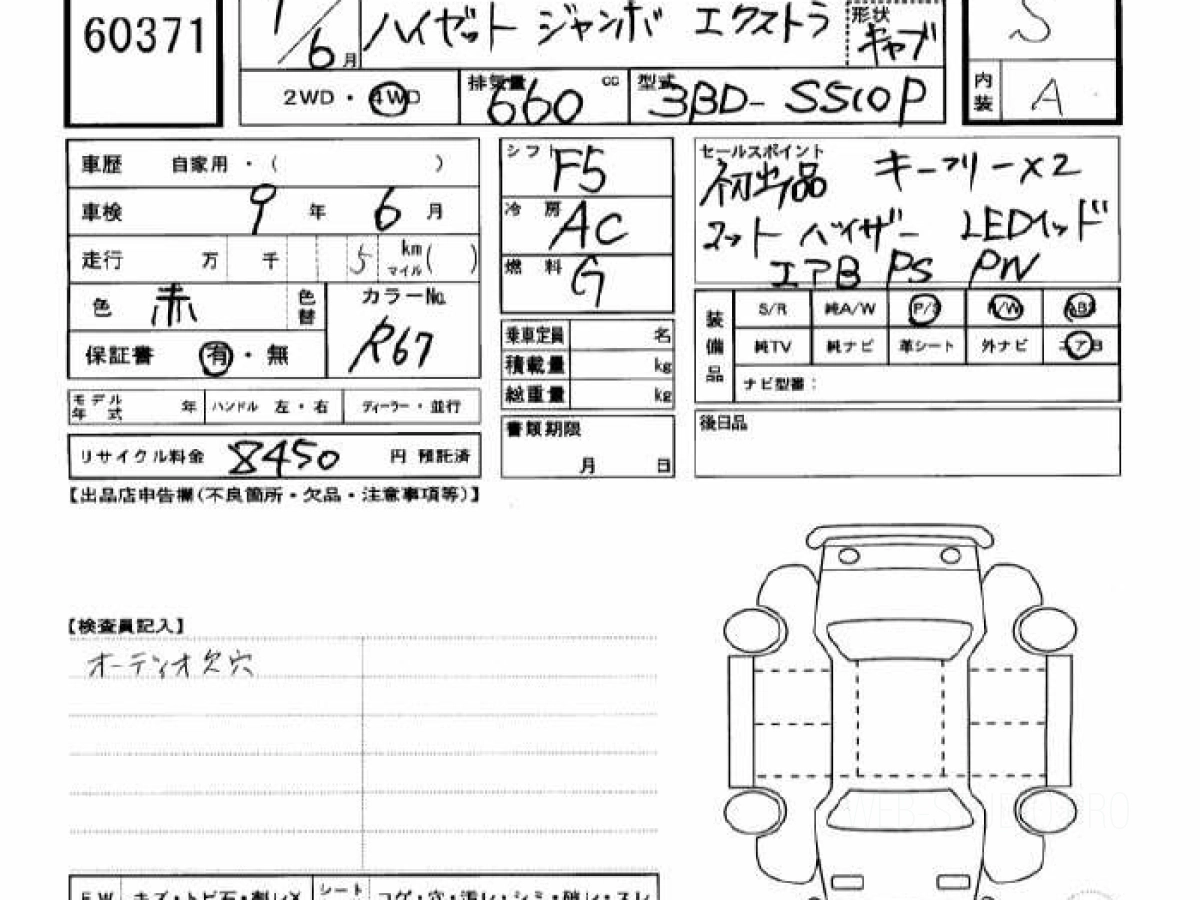 60371
7/6月 ハイゼット ジャンボ エクストラ 形状 キャブ S
2WD・4WD 排気量 660 cc 型式 3BD-S510P 内装 A
車歴 自家用・( )
車検 9年 6月
走行 万 千 5 km マイル( )
色 赤 色替 カラーNo. R67
保証書 有・無
モデル年式 年 ハンドル 左・右 ディーラー・並行
リサイクル料金 8450 円 預託済
シフト F5
冷房 AC
燃料 G
乗車定員 名
積載量 kg
総重量 kg
書類期限
月 日
セールスポイント
初出品 キーフリー×2
マット バイザー LEDヘッド
エアB PS PW
装備品 S/R 純A/W P/S P/W ABS
純TV 純ナビ 革シート 外ナビ エアB
ナビ型番:
後日品
【出品店申告欄(不良箇所・欠品・注意事項等)】
【検査員記入】
オーディオ欠穴
FW キズ・トビ石・創レX シート コゲ・穴・汚レ・シミ・破レ・スレ